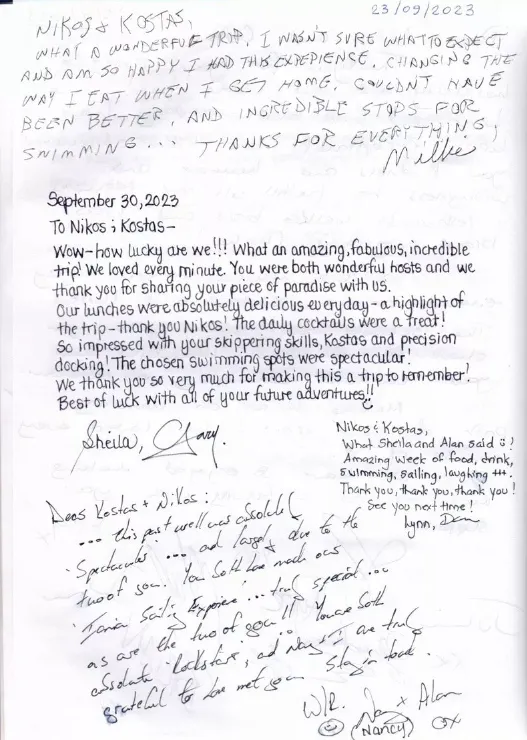 23/09/2023
NIKOS & KOSTAS,
WHAT A WONDERFUL TRIP, I WASN'T SURE WHAT TO EXPECT
AND AM SO HAPPY I HAD THIS EXPERIENCE, CHANGING THE
WAY I EAT WHEN I GET HOME. COULDN'T HAVE
BEEN BETTER, AND INCREDIBLE STOPS FOR
SWIMMING... THANKS FOR EVERYTHING,
Millie
September 30, 2023
To Nikos & Kostas—
Wow—how lucky are we!!! What an amazing, fabulous, incredible
trip! We loved every minute. You were both wonderful hosts and we
thank you for sharing your piece of paradise with us.
Our lunches were absolutely delicious everyday—a highlight of
the trip—thank you Nikos! The daily cocktails were a treat!
So impressed with your skippering skills, Kostas and precision
docking! The chosen swimming spots were spectacular!
We thank you so very much for making this a trip to remember!
Best of luck with all of your future adventures!!
Sheila,
Nikos & Kostas,
What Sheila and Alan said !
Amazing week of food, drink,
swimming, sailing, laughing +++.
Thank you, thank you, thank you!
See you next time!
Lynn,
Dear Kostas & Nikos:
... this past week was absolutely
'Spectacular' ... and largely due to the
two of you. You both have made our
Ionian Sailing Experience ... truly special ...
as are the two of you!! You are both
absolute 'Rockstars', and Nancy & I are truly
grateful to have met you. Stay in touch.
W/R. x Alan
(Nancy) ox